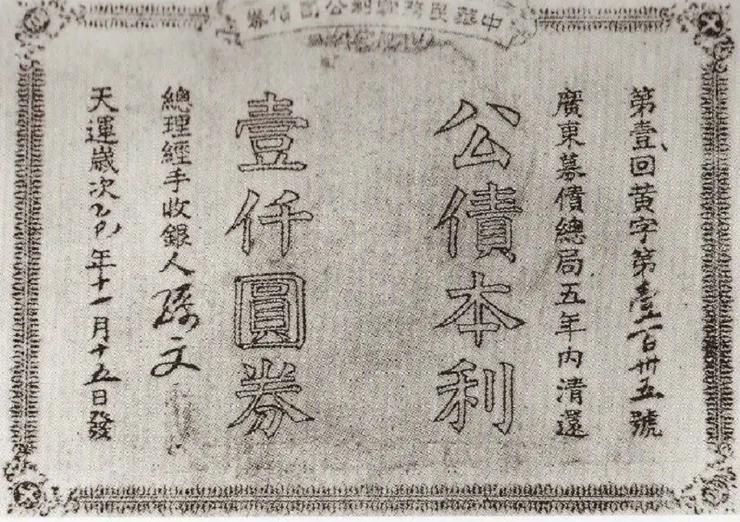 中華民務興利公司債券
第壹回黃字第壹百卅五號
廣東募債總局五年內清還
公債本利
壹仟圓券
總理經手收銀人孫文
天運歲次乙巳年十一月十五日發